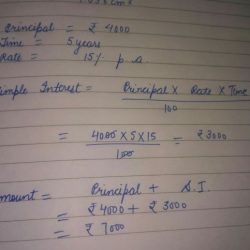 Principal = ₹ 4000
Time = 5 years
Rate = 15% p.a.
Simple Interest = Principal × Rate × Time
100
= 4000 × 5 × 15 = ₹ 3000
100
Amount = Principal + S.I.
= ₹ 4000 + ₹ 3000
= ₹ 7000